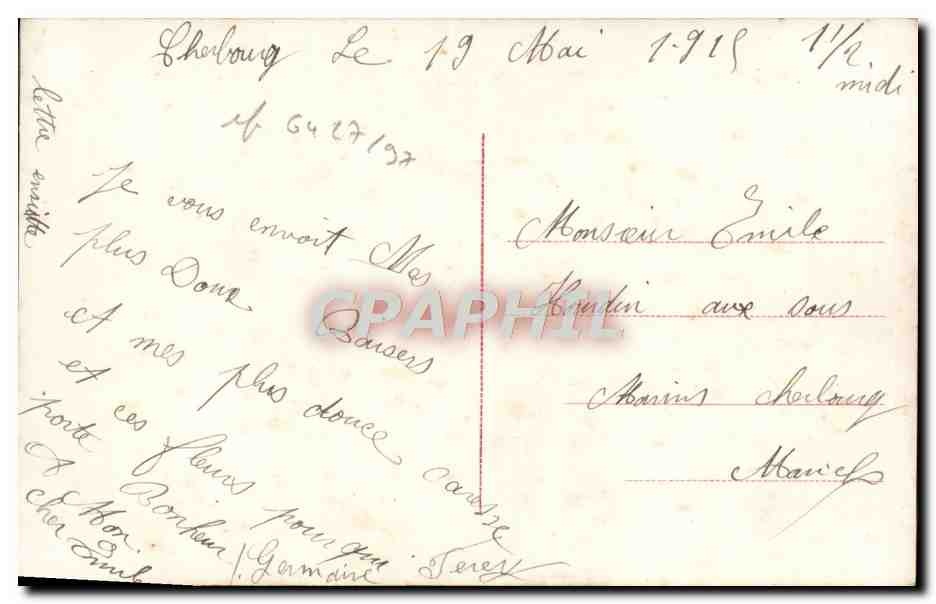 Cherbourg Le 19 Mai 1915 11/2
midi
lettre ensuitte
rf 6427/97
Je vous envoit Mes
plus Doux Baisers
et mes plus douce caresse
et ces fleurs pour qui
porte Bonheur
A Mon
cher Emile
Germaine
Monsieur Emile
Houdin aux sous
Marins cherbourg
CPAPHIL